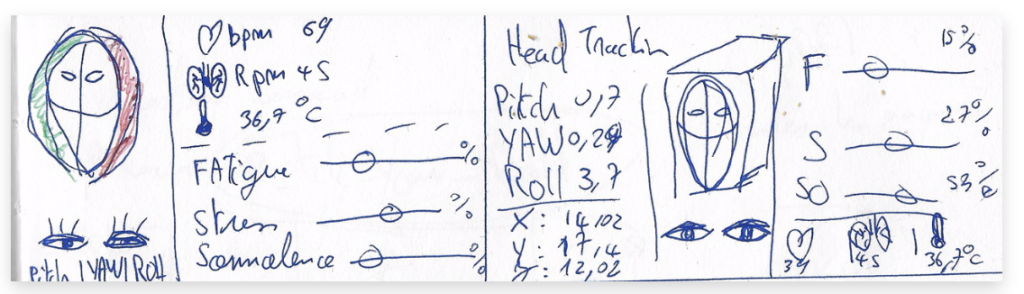 bpm 69
Rpm 45
36,7 °C
FAtigue %
Stress %
Somnolence %
Pitch | YAW | Roll
Head Trackin
Pitch 0,7
YAW 0,29
Roll 3,7
X: 14,02
Y: 17,4
Z: 12,02
F 15%
S 27%
SO 53%
45
36,7°C